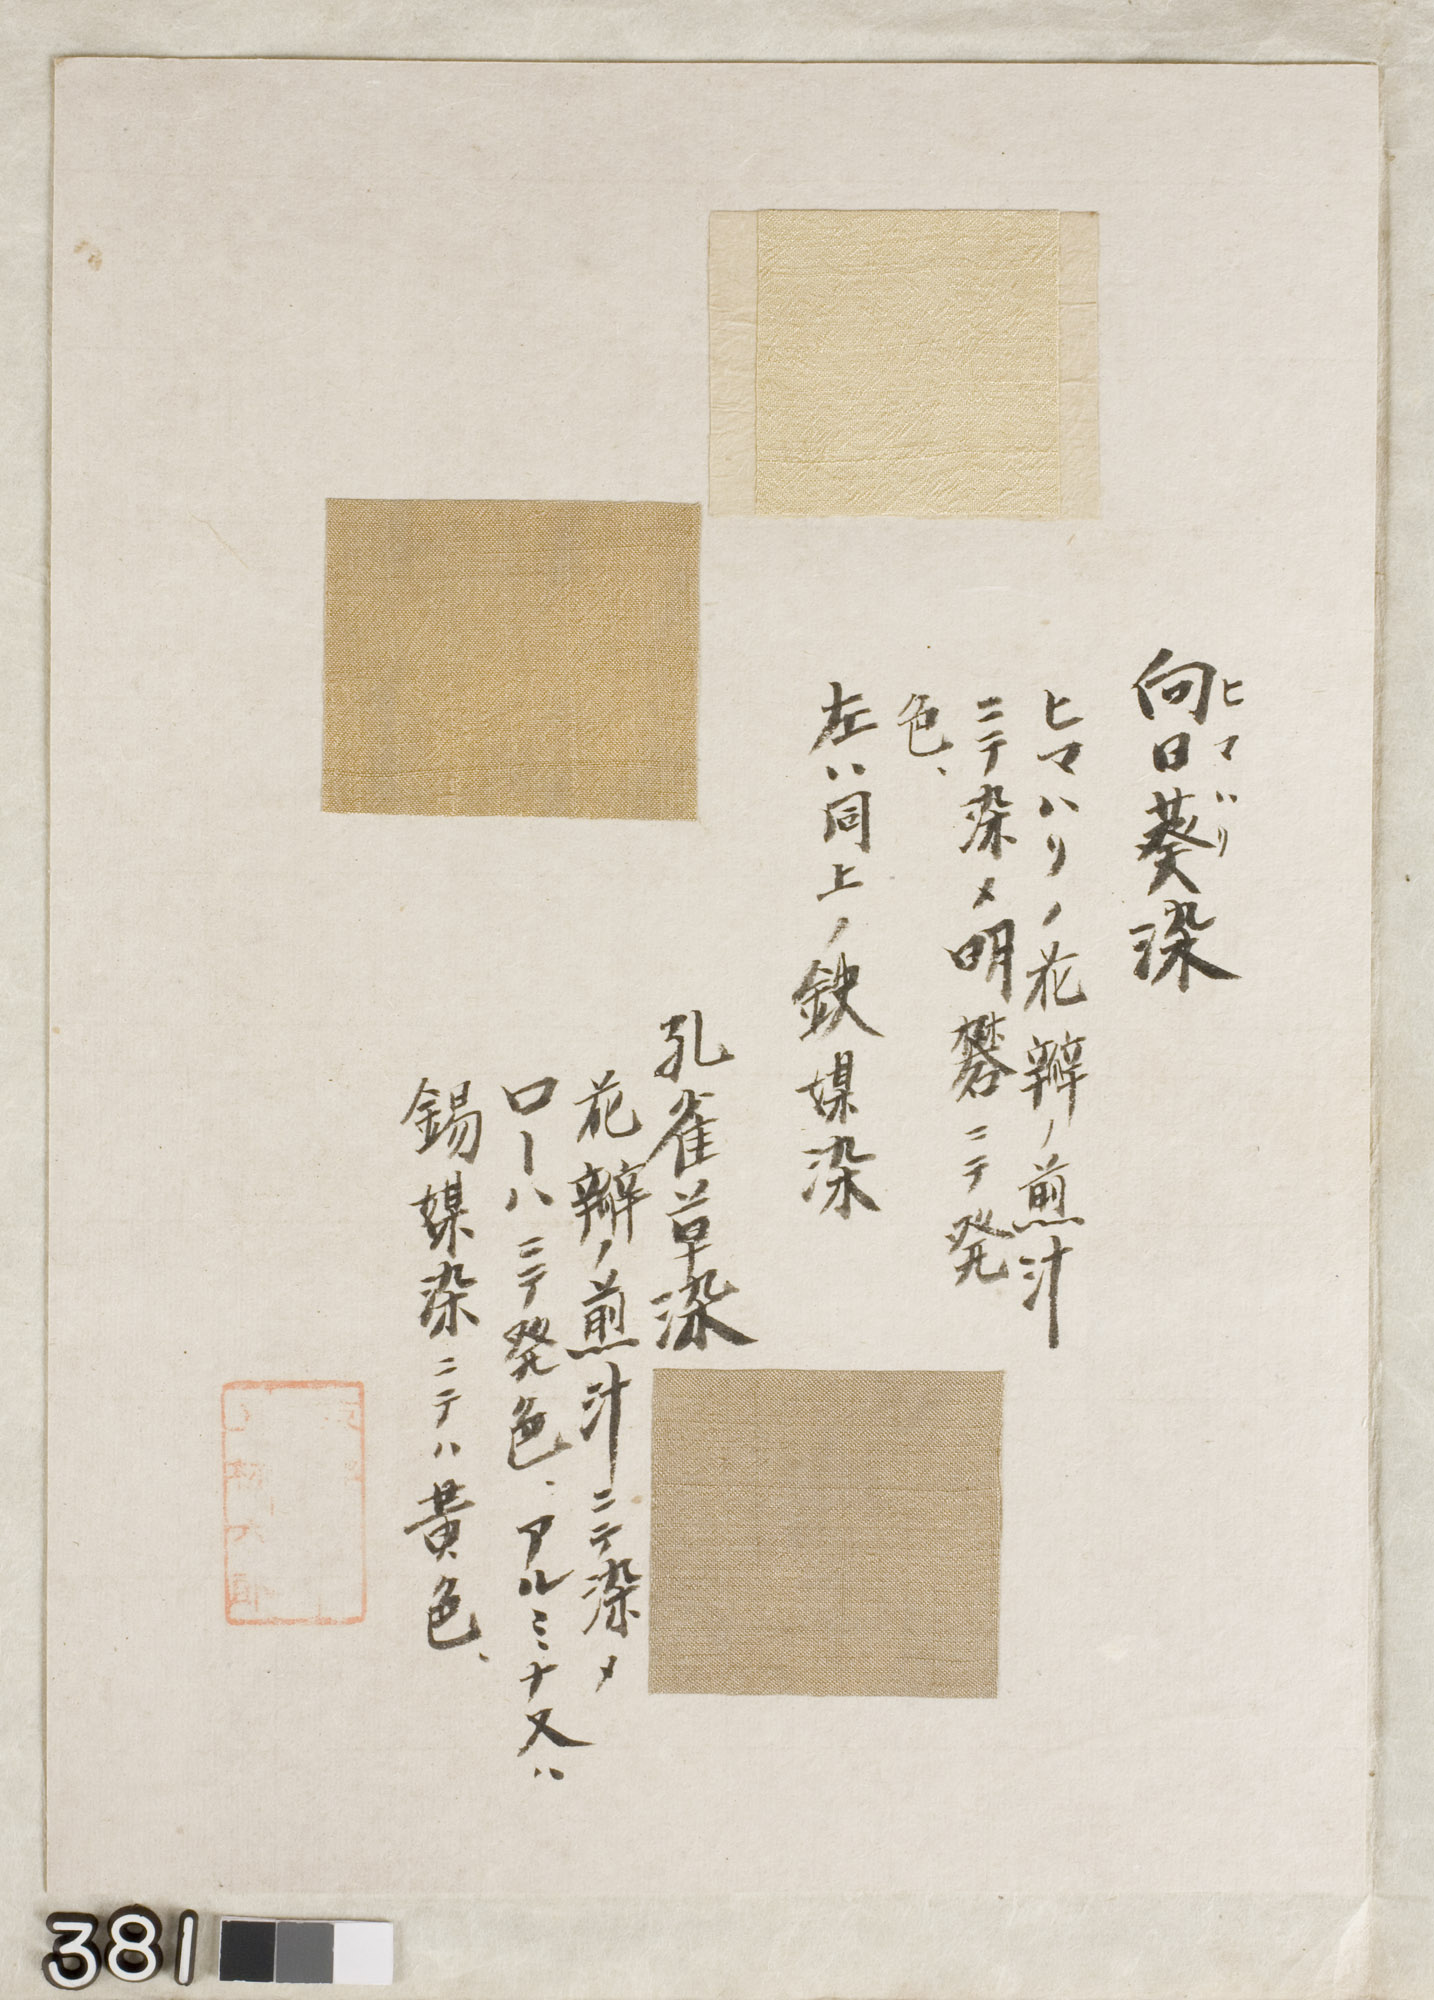 向日葵染
ヒマハリ
ヒマハリノ花瓣ノ煎汁
ニテ染メ明礬ニテ発
色、
左ハ同上ノ鉄媒染
孔雀草染
花瓣ノ煎汁ニテ染メ
ローハニテ発色、アルミナ又ハ
錫媒染ニテハ黄色、
381